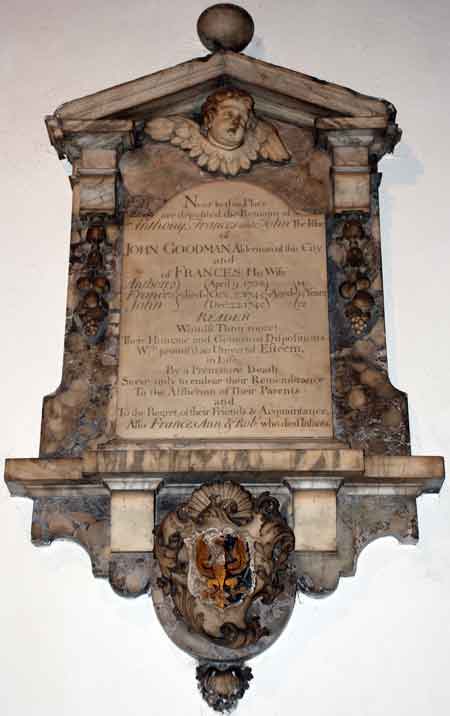 Near to this Place
are deposited the Remains of
Anthony, Frances and John The
of
JOHN GOODMAN Alderman of this City
and
of FRANCES His Wife
Anthony (April 9
Frances died Oct. Aged Years
John (Dec. 22
READER
Wouldst Thou know?
Their Humane and Generous Dispositions
an Universal Esteem,
in Life,
By a Premature Death
Serve only to endear their Remembrance
To the Affliction of Their Parents
and
To the Regret, of their Friends & Acquaintance,
Also Frances Ann & Rob. who died Infants.